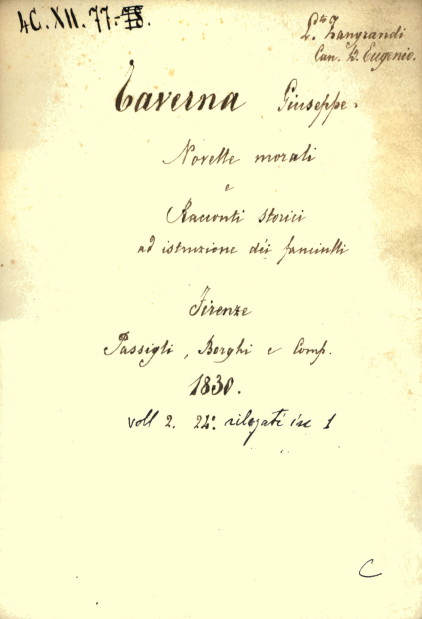 4C. XII. 77.-78.
L.to Zangrandi
Can. D. Eugenio.
Taverna Giuseppe.
Novelle morali
e
Racconti storici
ad istruzione dei fanciulli
Firenze
Passigli, Borghi e Comp.
1830.
voll 2. 24°. rilegati in 1
C